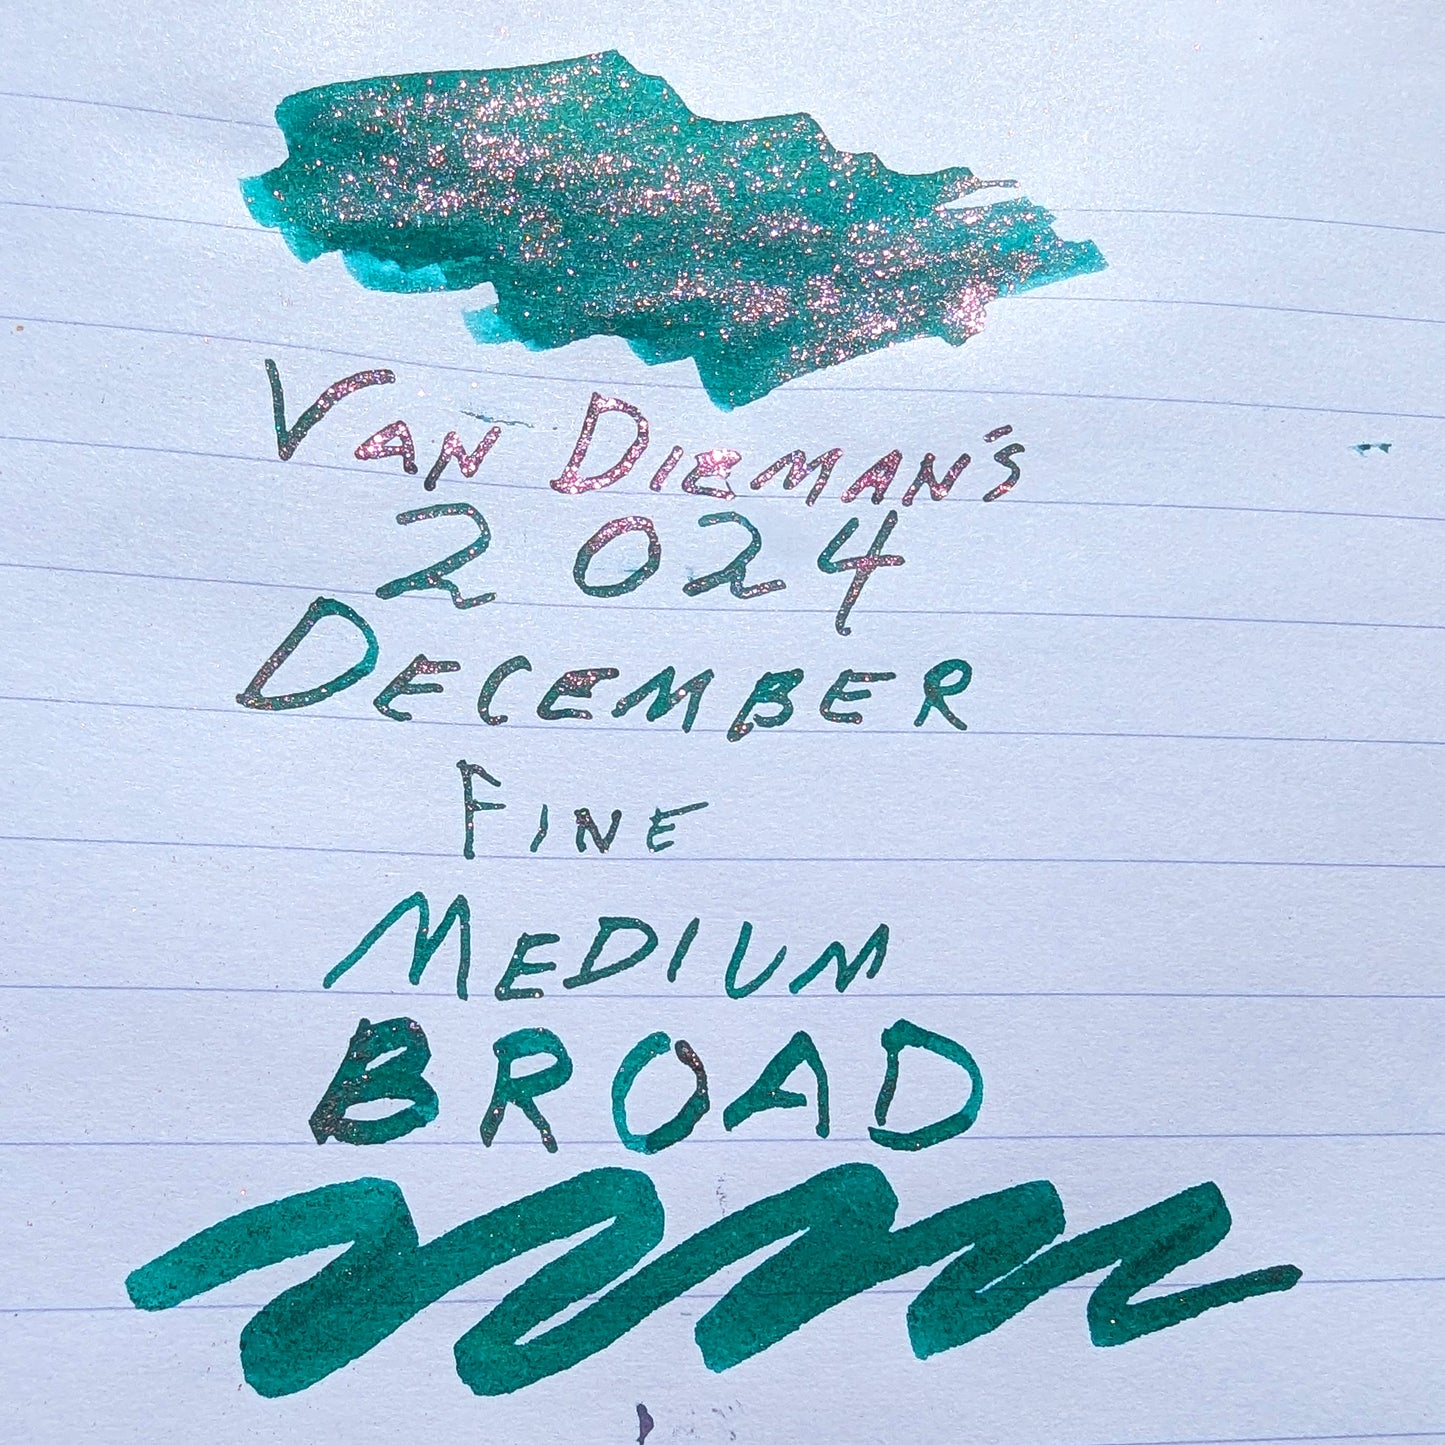 VAN DIEMAN'S
2024
DECEMBER
FINE
MEDIUM
BROAD